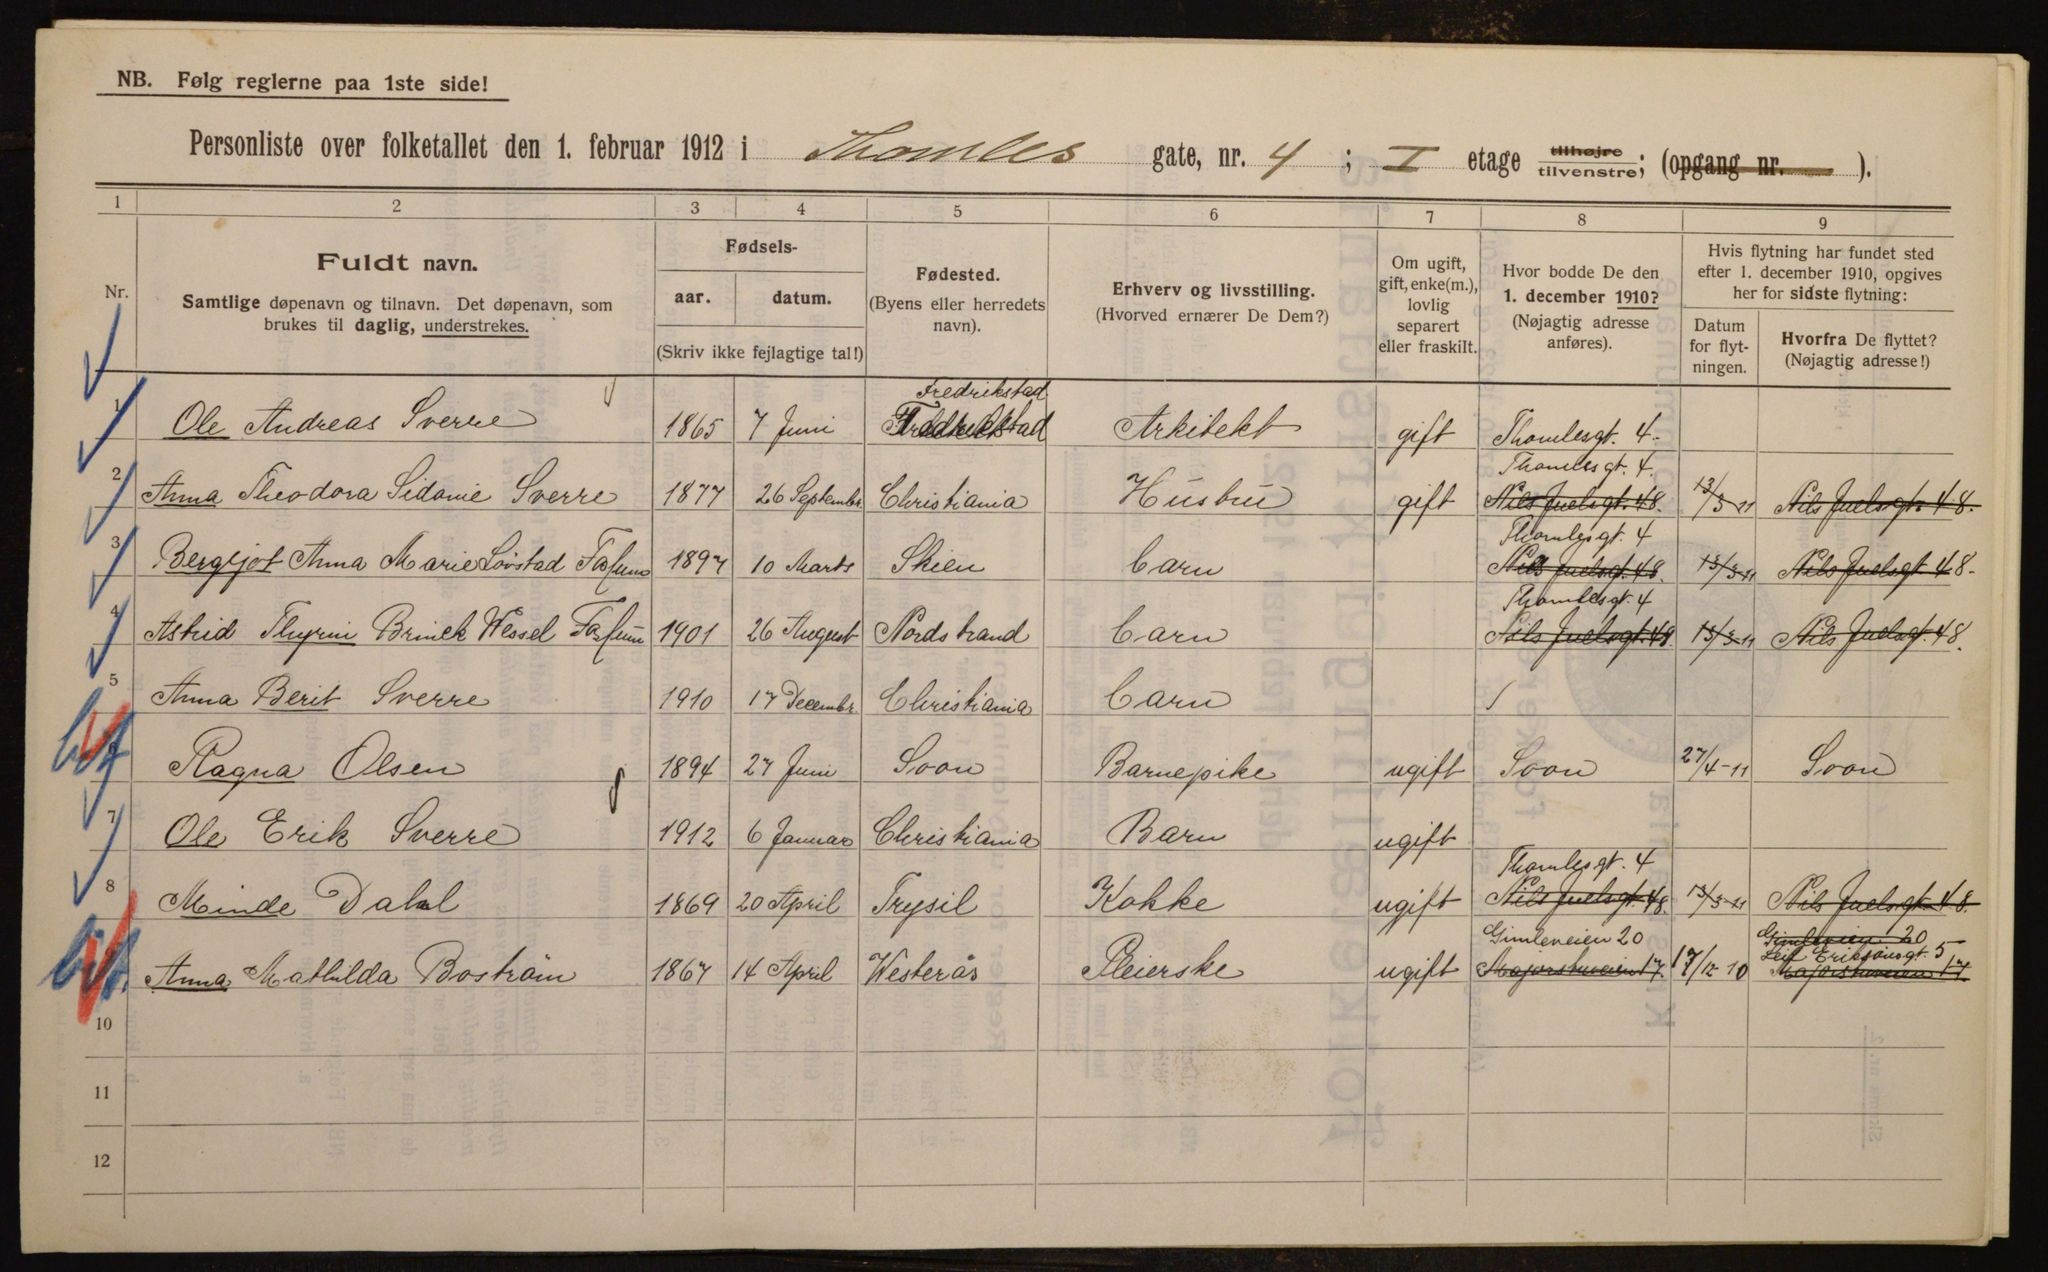 NB. Følg reglerne paa 1ste side!
Personliste over folketallet den 1. februar 1912 i Thomles gate, nr. 4 ; I etage tilhøjre tilvenstre; (opgang nr. ).
1 2 3 4 5 6 7 8 9
Nr.
Fuldt navn.
Samtlige døpenavn og tilnavn. Det døpenavn, som
brukes til daglig, understrekes.
Fødsels-
aar. datum.
(Skriv ikke fejlagtige tal!)
Fødested.
(Byens eller herredets
navn).
Erhverv og livsstilling.
(Hvorved ernærer De Dem?)
Om ugift,
gift, enke(m.),
lovlig
separert
eller fraskilt.
Hvor bodde De den
1. december 1910?
(Nøjagtig adresse
anføres).
Hvis flytning har fundet sted
efter 1. december 1910, opgives
her for sidste flytning:
Datum
for flyt-
ningen.
Hvorfra De flyttet?
(Nøjagtig adresse!)
Fredrikstad
1 Ole Andreas Sverre 1865 7 Juni Fredrikstad Arkitekt gift Thomlesgt. 4
Thomlesgt. 4.
2 Anna Theodora Sidonie Sverre 1877 26 Septembr. Christiania Hustru gift Nils Juelsgt. 48. 13/3-11 Nils Juelsgt. 48.
Thomlesgt. 4
3 Bergljot Anna Marie Løvstad 1897 10 Marts Skien Barn Nils Juelsgt. 48. 13/3-11 Nils Juelsgt 48.
Thomlesgt. 4
4 Astrid Thyrni Brinck Wessel 1901 26 August Nordstrand Barn Nils Juelsgt. 48 13/3-11 Nils Juelsgt. 48.
5 Anna Berit Sverre 1910 17 Decembr. Christiania Barn
6 Ragna Olsen 1894 27 Juni Soon Barnepike ugift Soon 27/4-11 Soon
7 Ole Erik Sverre 1912 6 Januar Christiania Barn ugift
Thomlesgt. 4
8 Minde Dahl 1869 20 April Trysil Kokke ugift Nils Juelsgt. 48 13/3-11 Nils Juelsgt. 48.
Gimleveien 20 Gimleveien 20
Leif Eriksonsgt. 5
9 Anna Mathilda Boström 1867 14 April Westerås Pleierske ugift Majorstuveien 17. 17/12 10 Majorstuveien 17.
10
11
12